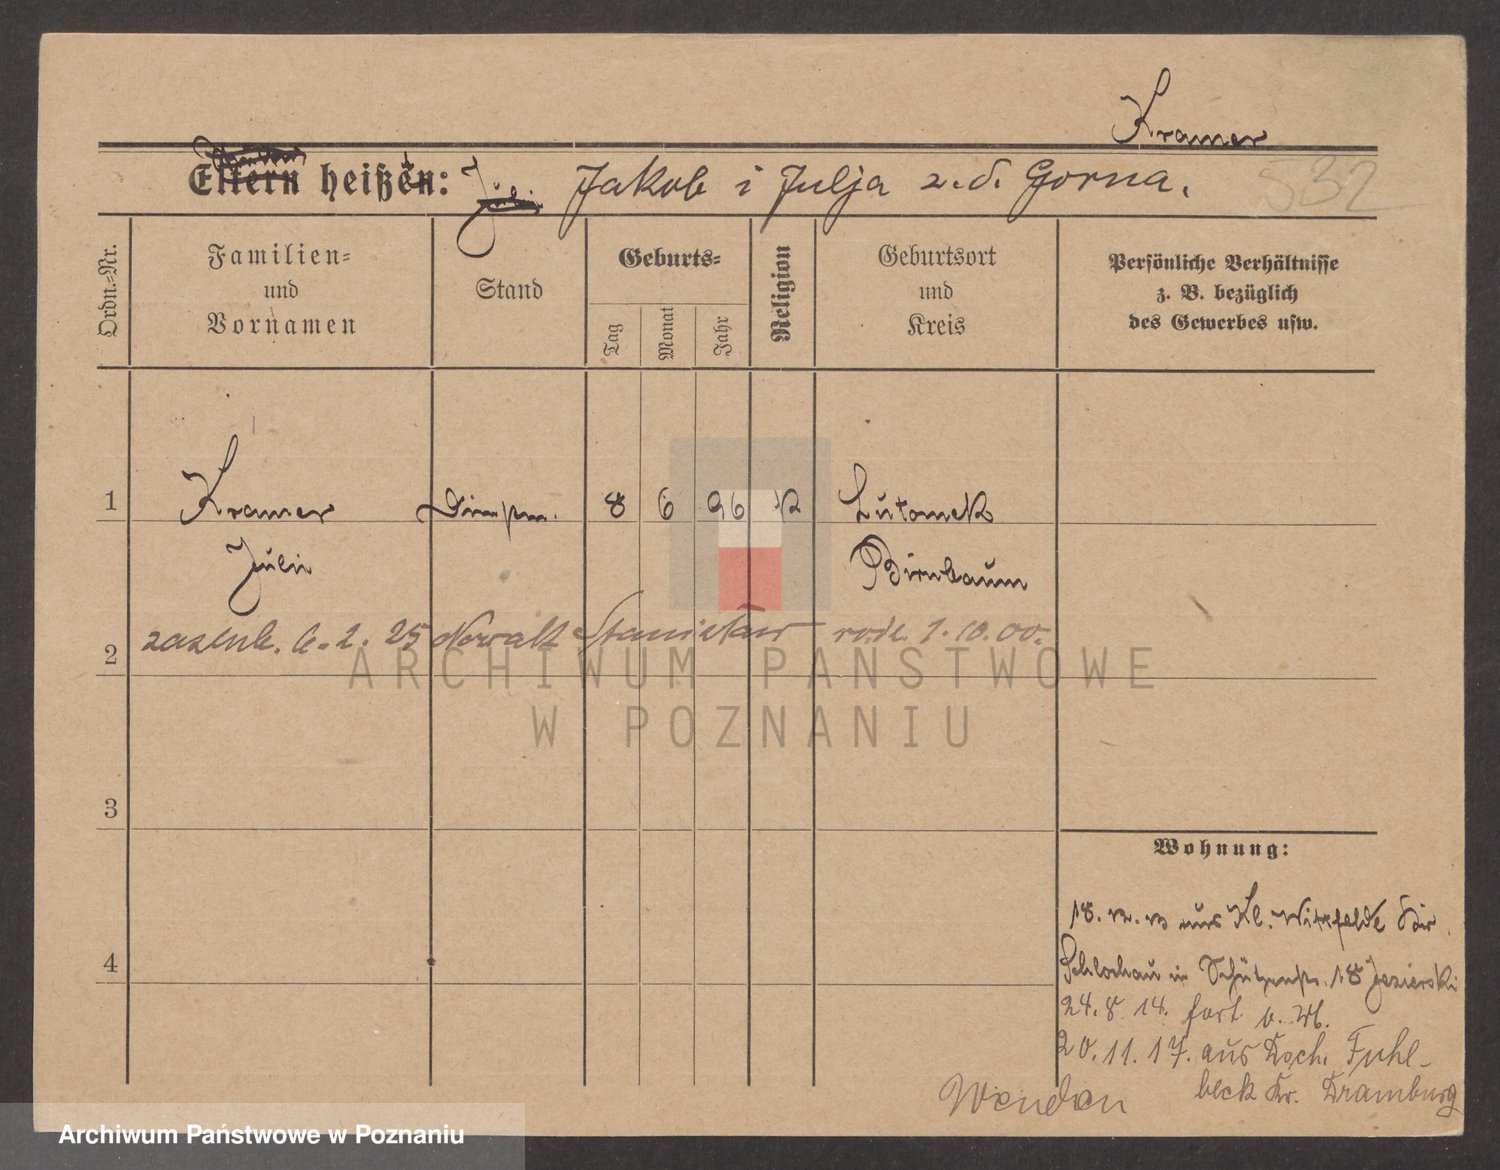 Kramer
Eltern heißen: Jakob i Julja z.d. Gorna.
532
Ordn.-Nr.
Familien-
und
Vornamen
Stand
Geburts-
Tag
Monat
Jahr
Religion
Geburtsort
und
Kreis
Persönliche Verhältnisse
z. B. bezüglich
des Gewerbes usw.
1 Kramer 8 6 96 K Lutomek
Julie Birnbaum
2 6.2.25 Nowak Stanisław 7.10.00.
ARCHIWUM PAŃSTWOWE
W POZNANIU
3
Wohnung:
18. aus Kl. Wittfelde
4 Schlochau in Schützenstr. 18 Jezierski
24.8.14. fort
20.11.17. aus Fuhl-
beck Kr. Dramburg
Wenden
Archiwum Państwowe w Poznaniu